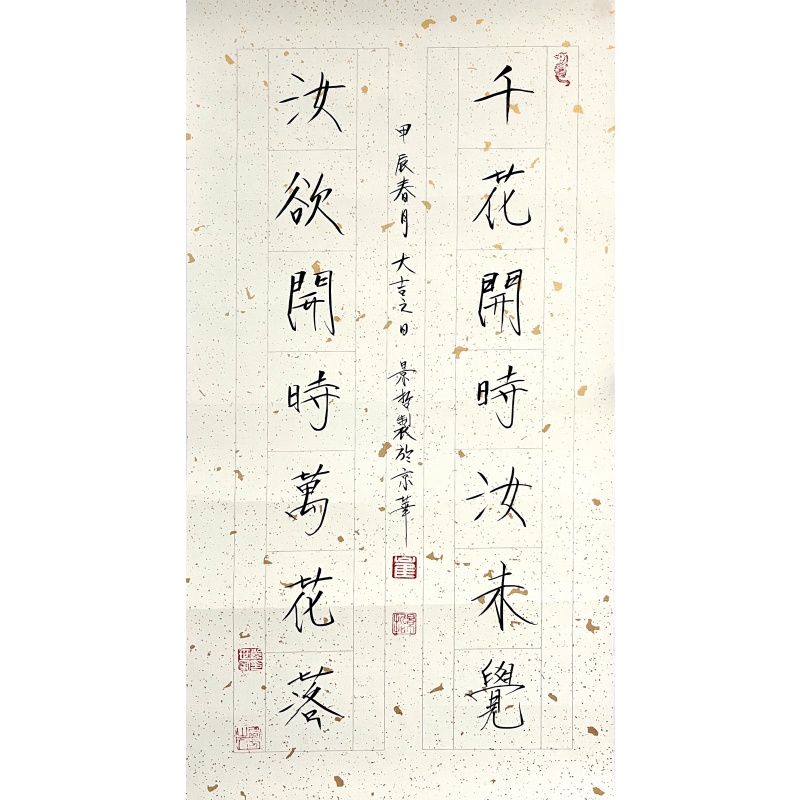 千花開時汝未覺
甲辰春月 大吉之日 景哲製於京華
汝欲開時萬花落